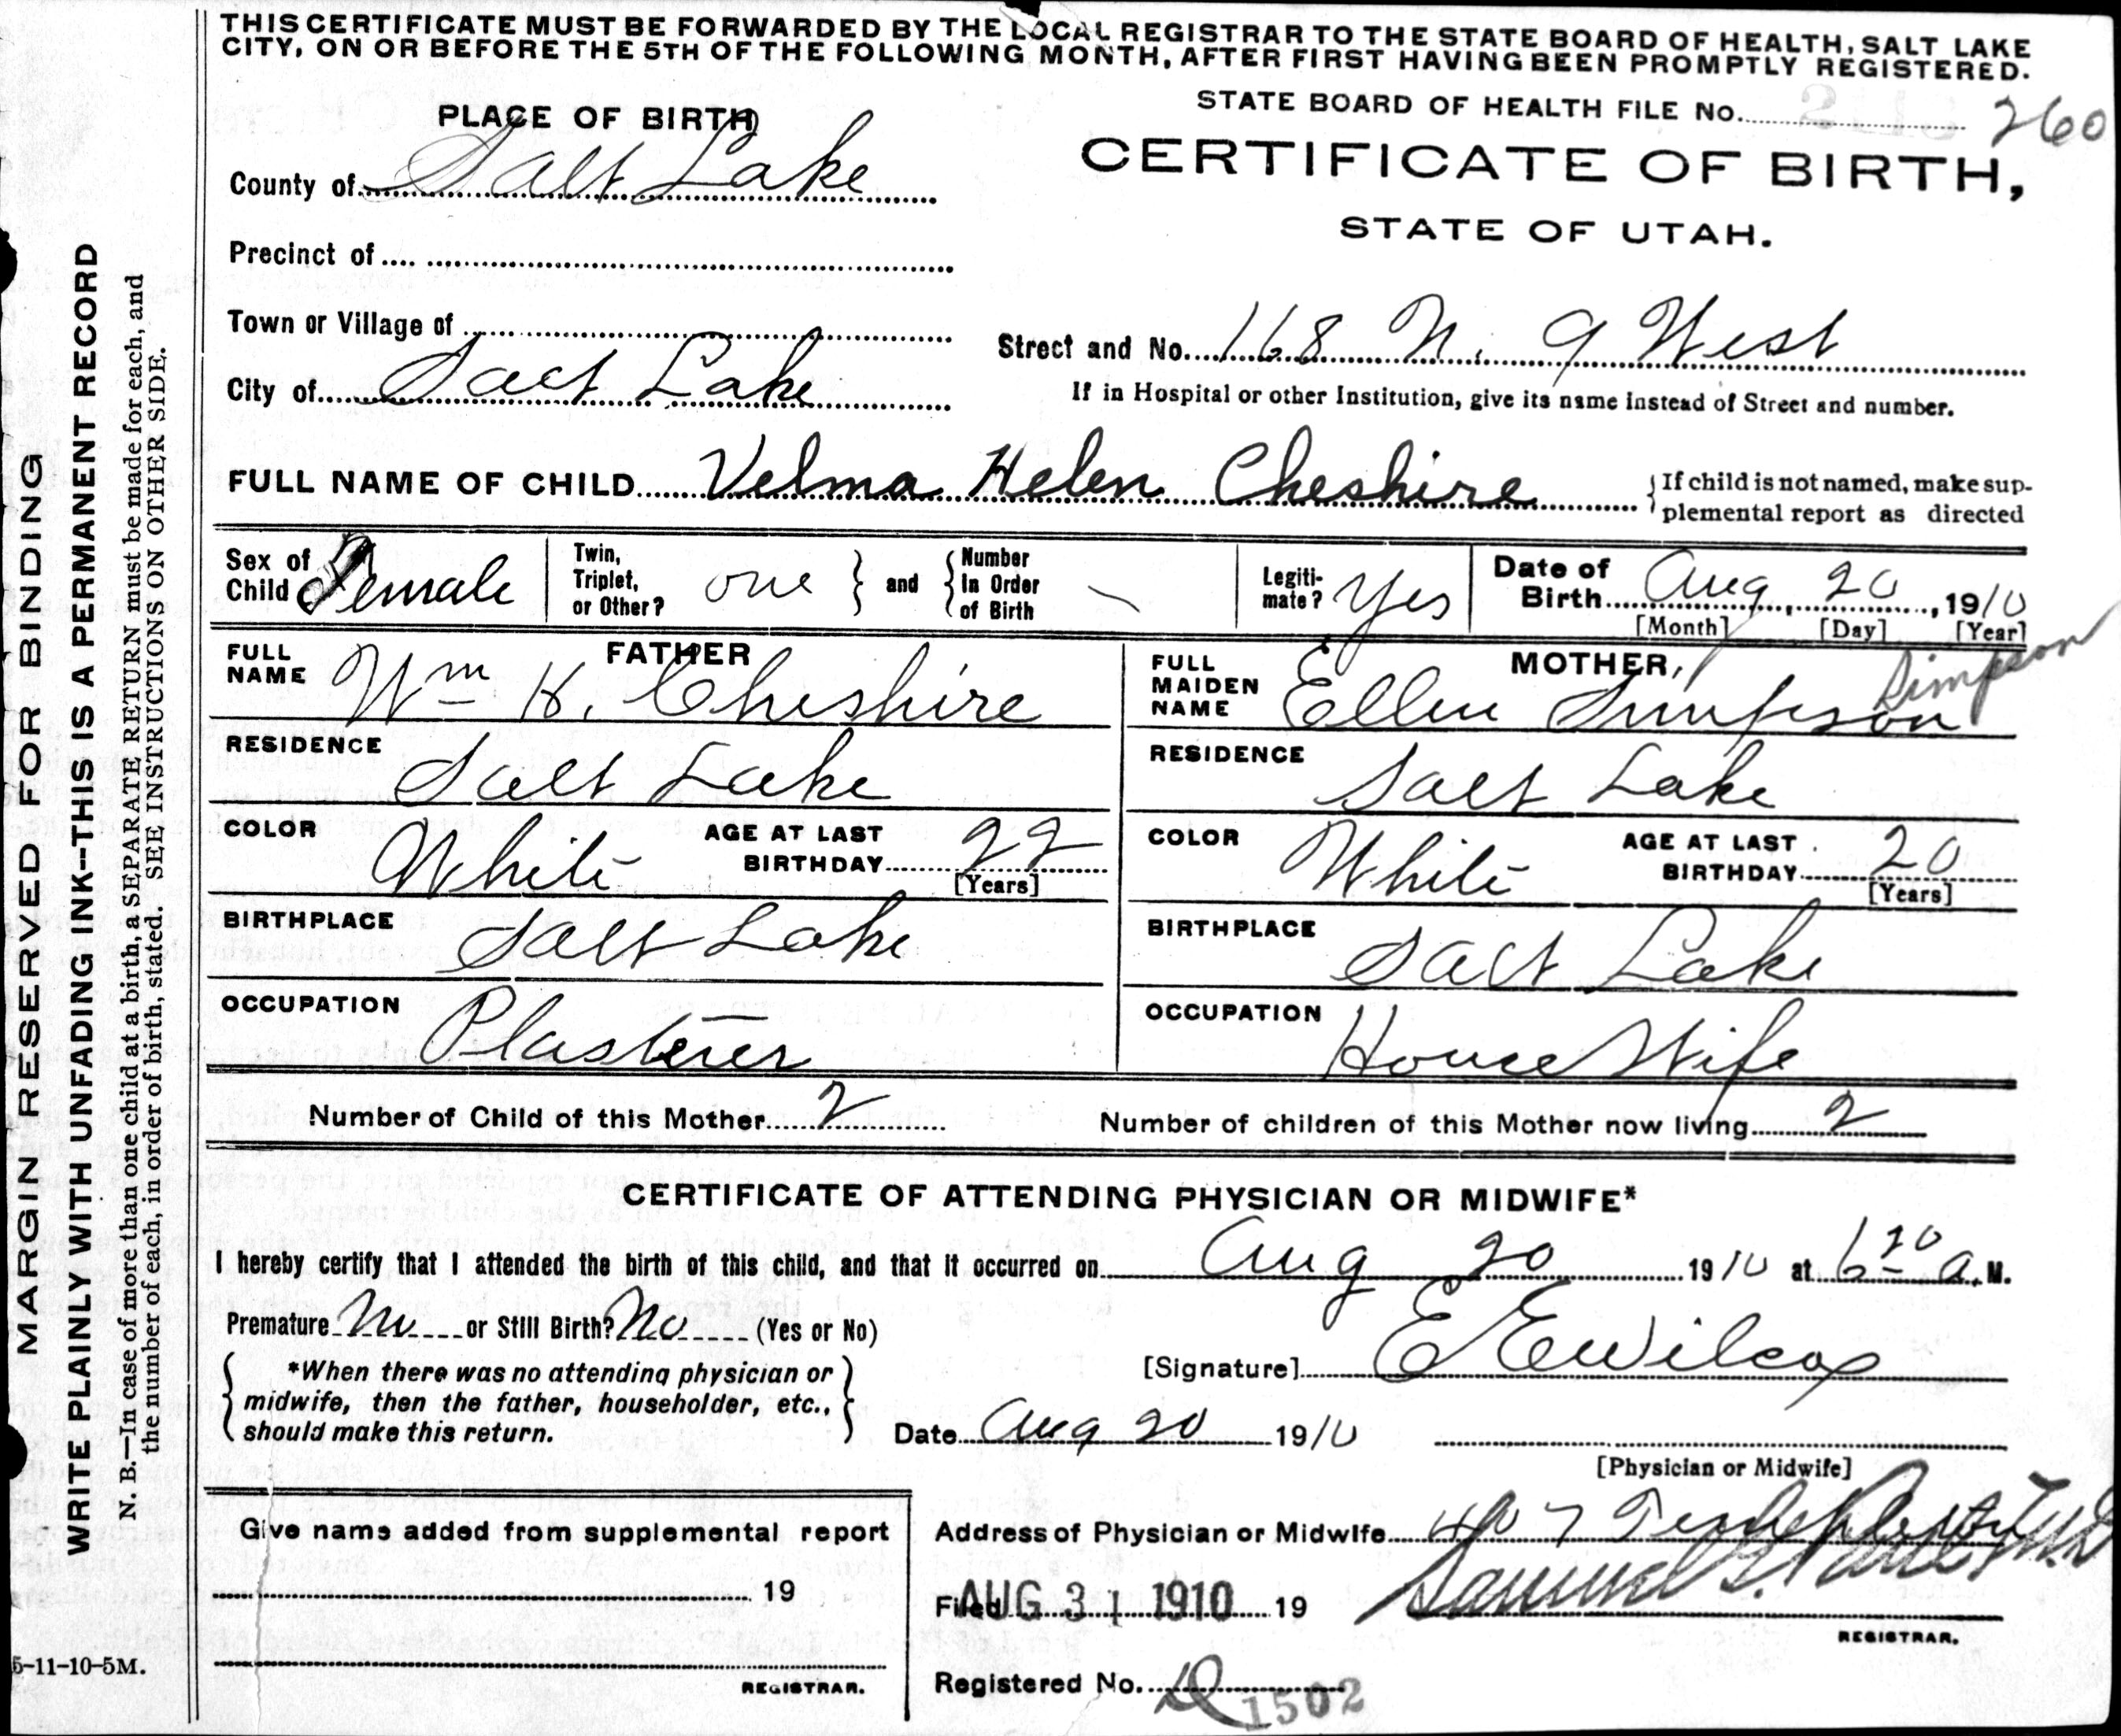 THIS CERTIFICATE MUST BE FORWARDED BY THE LOCAL REGISTRAR TO THE STATE BOARD OF HEALTH, SALT LAKE
CITY, ON OR BEFORE THE 5TH OF THE FOLLOWING MONTH, AFTER FIRST HAVING BEEN PROMPTLY REGISTERED.
STATE BOARD OF HEALTH FILE No. 260
PLACE OF BIRTH
CERTIFICATE OF BIRTH,
STATE OF UTAH.
County of Salt Lake
Precinct of
Town or Village of
Street and No. 168 N. 9 West
City of Salt Lake
If in Hospital or other Institution, give its name instead of Street and number.
FULL NAME OF CHILD Velma Helen Cheshire
{If child is not named, make sup-
plemental report as directed
Sex of Child Female
Twin, Triplet, or Other? one } and { Number In Order of Birth
Legiti-mate? Yes
Date of Birth Aug 20, 1910
[Month] [Day] [Year]
FATHER
FULL NAME Wm K. Cheshire
RESIDENCE Salt Lake
COLOR White AGE AT LAST BIRTHDAY 22 [Years]
BIRTHPLACE Salt Lake
OCCUPATION Plasterer
MOTHER Simpson
FULL MAIDEN NAME Ellen Simpson
RESIDENCE Salt Lake
COLOR White AGE AT LAST BIRTHDAY 20 [Years]
BIRTHPLACE Salt Lake
OCCUPATION House Wife
Number of Child of this Mother 2 Number of children of this Mother now living 2
CERTIFICATE OF ATTENDING PHYSICIAN OR MIDWIFE*
I hereby certify that I attended the birth of this child, and that it occurred on Aug 20 1910 at 6 20 a. M.
Premature No or Still Birth? No (Yes or No)
*When there was no attending physician or
midwife, then the father, householder, etc.,
should make this return.
[Signature] E E Wilcox
Date Aug 20 1910
[Physician or Midwife]
Address of Physician or Midwife 407
Give name added from supplemental report
19
REGISTRAR.
Filed AUG 31 1910 19
Samuel G. Paul M.D.
REGISTRAR.
Registered No. 1502
5-11-10-5M.
MARGIN RESERVED FOR BINDING
WRITE PLAINLY WITH UNFADING INK--THIS IS A PERMANENT RECORD
N. B.—In case of more than one child at a birth, a SEPARATE RETURN must be made for each, and
the number of each, in order of birth, stated. SEE INSTRUCTIONS ON OTHER SIDE.